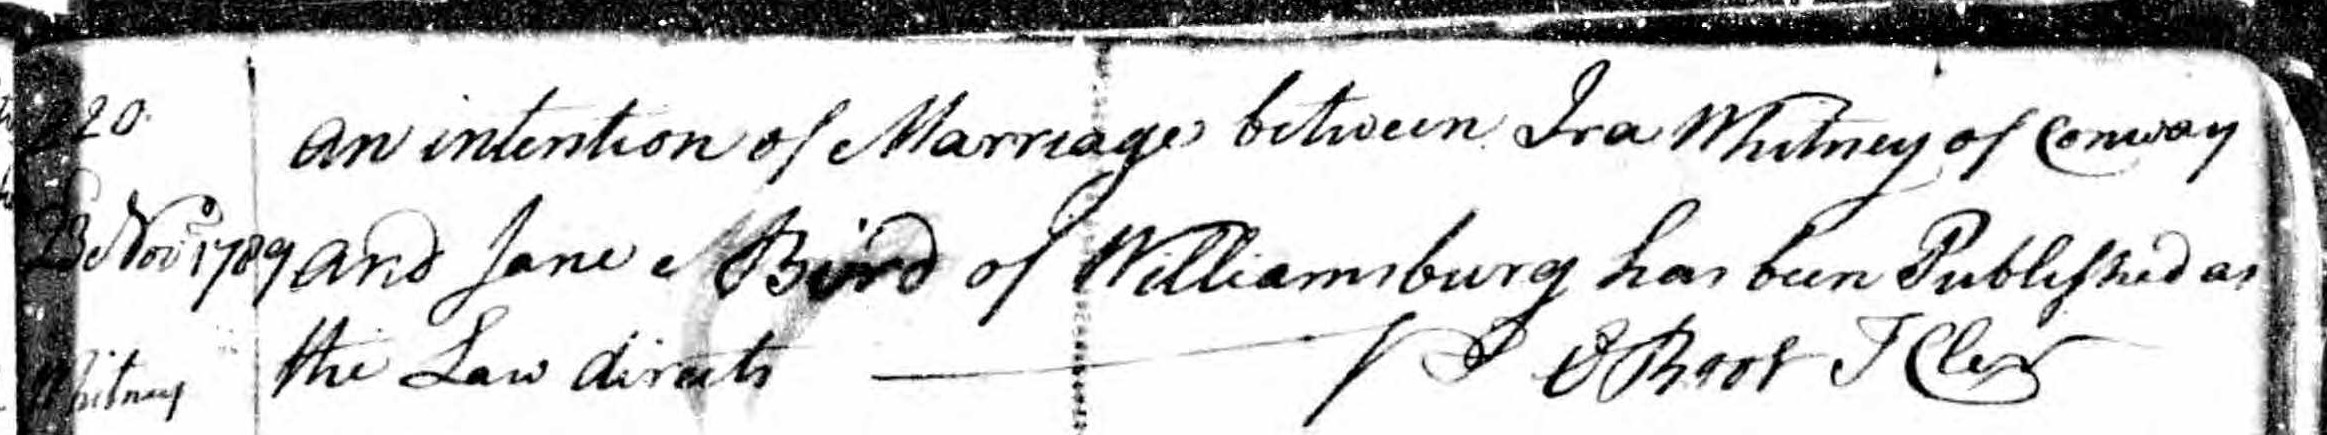 220.
an intention of Marriage between Ira Whitney of Conway
Novr 1789 and Jane Bird of Williamsburg has been Published as
Whitney the Law directs — O Root T Cler